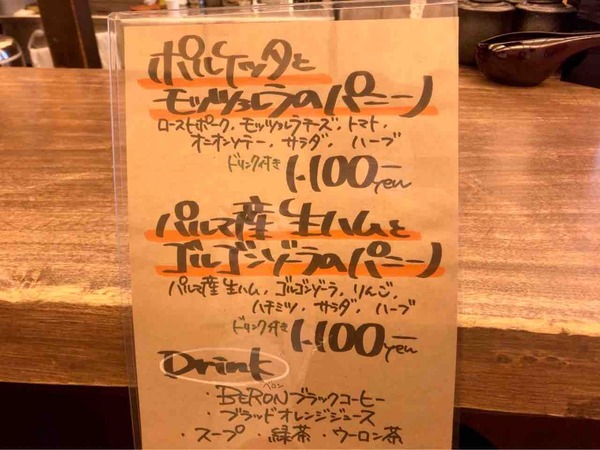 ポルケッタと
モッツァレラのパニーノ
ローストポーク、モッツァレラチーズ、トマト、
オニオンソテー、サラダ、ハーブ
ドリンク付き 1,100yen
パルマ産 生ハムと
ゴルゴンゾーラのパニーノ
パルマ産 生ハム、ゴルゴンゾーラ、りんご、
ハチミツ、サラダ、ハーブ
ドリンク付き 1,100yen
Drink
ベロン
・BERONブラックコーヒー
・ブラッドオレンジジュース
・スープ ・緑茶 ・ウーロン茶